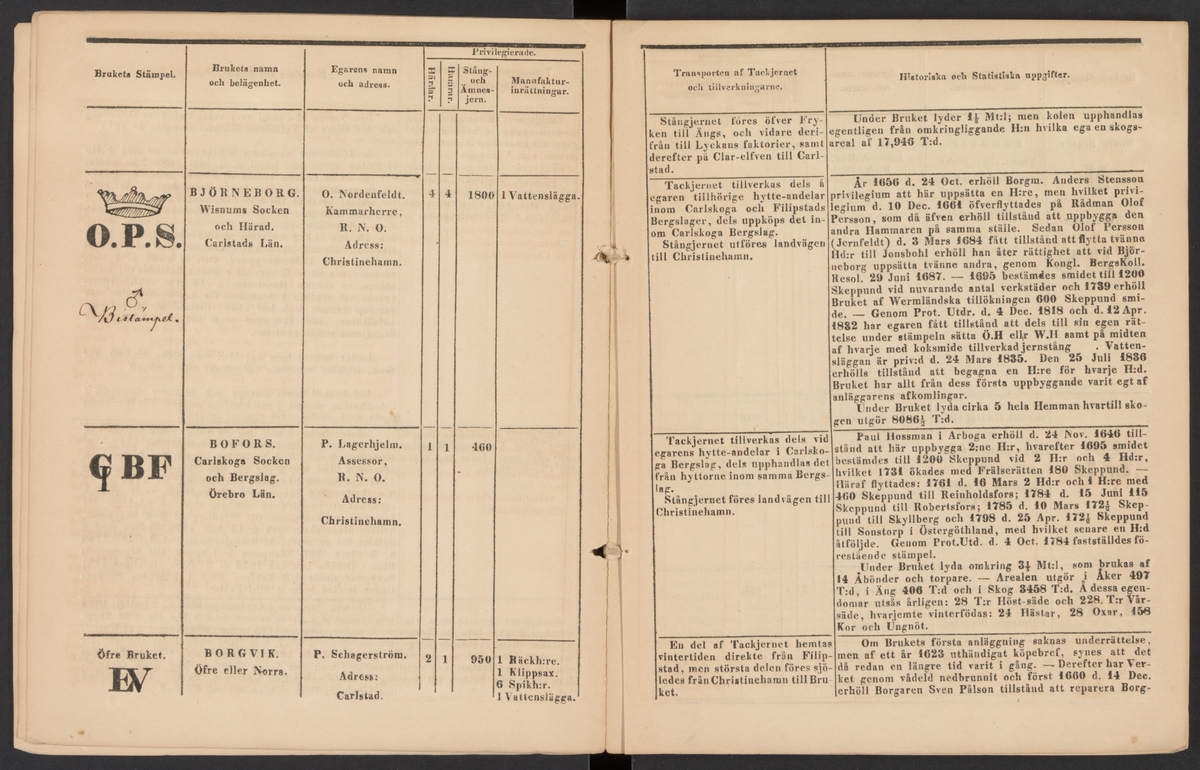 Privilegierade.
Brukets Stämpel.
Brukets namn
och belägenhet.
Egarens namn
och adress.
Härdar.
Hamrar.
Stång-
och
Ämnes-
jern.
Manufaktur-
inrättningar.
O.P.S.
♂
Bistämpel.
BJÖRNEBORG.
Wisnums Socken
och Härad.
Carlstads Län.
O. Nordenfeldt.
Kammarherre,
R. N. O.
Adress:
Christinehamn.
4 4 1800 1 Vattenslägga.
GBF
BOFORS.
Carlskoga Socken
och Bergslag.
Örebro Län.
P. Lagerhjelm.
Assessor,
R. N. O.
Adress:
Christinehamn.
1 1 460
Öfre Bruket.
EV
BORGVIK.
Öfre eller Norra.
P. Schagerström.
Adress:
Carlstad.
2 1 950 1 Räckh:re.
1 Klippsax.
6 Spikh:r.
1 Vattenslägga.
Transporten af Tackjernet
och tillverkningarne.
Historiska och Statistiska uppgifter.
Stångjernet föres öfver Fry-
ken till Ängs, och vidare deri-
från till Lyckans faktorier, samt
derefter på Clar-elfven till Carl-
stad.
Under Bruket lyder 1½ Mt:l; men kolen upphandlas
egentligen från omkringliggande H:n hvilka ega en skogs-
areal af 17,946 T:d.
Tackjernet tillverkas dels å
egaren tillhörige hytte-andelar
inom Carlskoga och Filipstads
Bergslager, dels uppköps det in-
om Carlskoga Bergslag.
Stångjernet utföres landvägen
till Christinehamn.
År 1656 d. 24 Oct. erhöll Borgm. Anders Stensson
privilegium att här uppsätta en H:re, men hvilket privi-
legium d. 10 Dec. 1661 öfverflyttades på Rådman Olof
Persson, som då äfven erhöll tillstånd att uppbygga den
andra Hammaren på samma ställe. Sedan Olof Persson
(Jernfeldt) d. 3 Mars 1684 fått tillstånd att flytta tvänne
Hd:r till Jonsbohl erhöll han åter rättighet att vid Björ-
neborg uppsätta tvänne andra, genom Kongl. BergsKoll.
Resol. 29 Juni 1687. — 1695 bestämdes smidet till 1200
Skeppund vid nuvarande antal verkstäder och 1739 erhöll
Bruket af Wermländska tillökningen 600 Skeppund smi-
de. — Genom Prot. Utdr. d. 4 Dec. 1818 och d. 12 Apr.
1832 har egaren fått tillstånd att dels till sin egen rät-
telse under stämpeln sätta Ö.H ellr W.H samt på midten
af hvarje med koksmide tillverkad jernstång . Vatten-
släggan är priv:d d. 24 Mars 1835. Den 25 Juli 1836
erhölls tillstånd att begagna en H:re för hvarje H:d.
Bruket har allt från dess första uppbyggande varit egt af
anläggarens afkomlingar.
Under Bruket lyda cirka 5 hela Hemman hvartill sko-
gen utgör 8086½ T:d.
Tackjernet tillverkas dels vid
egarens hytte-andelar i Carlsko-
ga Bergslag, dels upphandlas det
från hyttorne inom samma Bergs-
lag.
Stångjernet föres landvägen till
Christinehamn.
Paul Hossman i Arboga erhöll d. 24 Nov. 1646 till-
stånd att här uppbygga 2:ne H:r, hvarefter 1695 smidet
bestämdes till 1200 Skeppund vid 2 H:r och 4 Hd:r,
hvilket 1731 ökades med Frälserätten 180 Skeppund. —
Häraf flyttades: 1761 d. 16 Mars 2 Hd:r och 1 H:re med
460 Skeppund till Reinholdsfors; 1784 d. 15 Juni 115
Skeppund till Robertsfors; 1785 d. 10 Mars 172½ Skep-
pund till Skyllberg och 1798 d. 25 Apr. 172½ Skeppund
till Sonstorp i Östergöthland, med hvilket senare en H:d
åtföljde. Genom Prot.Utd. d. 4 Oct. 1784 fastställdes fö-
restående stämpel.
Under Bruket lyda omkring 3½ Mt:l, som brukas af
14 Åbönder och torpare. — Arealen utgör i Åker 497
T:d, i Äng 406 T:d och i Skog 3458 T:d. Å dessa egen-
domar utsås årligen: 28 T:r Höst-säde och 228 T:r Vår-
säde, hvarjemte vinterfödas: 24 Hästar, 28 Oxar, 158
Kor och Ungnöt.
En del af Tackjernet hemtas
vintertiden direkte från Filip-
stad, men största delen föres sjö-
ledes från Christinehamn till Bru-
ket.
Om Brukets första anläggning saknas underrättelse,
men af ett år 1623 uthändigat köpebref, synes att det
då redan en längre tid varit i gång. — Derefter har Ver-
ket genom vådeld nedbrunnit och först 1660 d. 14 Dec.
erhöll Borgaren Sven Pålson tillstånd att reparera Borg-